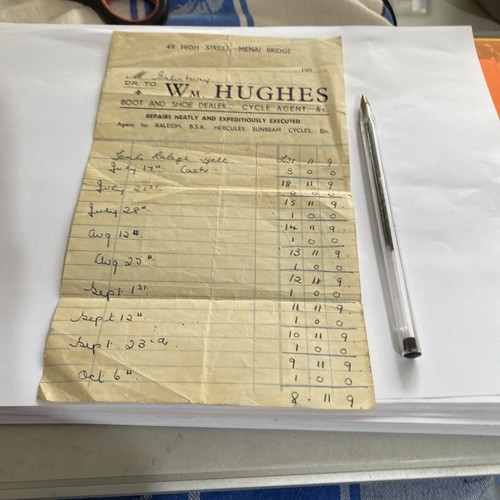 49 HIGH STREET, MENAI BRIDGE
195
M
DR. TO
WM. HUGHES
BOOT AND SHOE DEALER, CYCLE AGENT, &c.
REPAIRS NEATLY AND EXPEDITIOUSLY EXECUTED
Agent for RALEIGH, B.S.A. HERCULES, SUNBEAM CYCLES, Etc.
Raleigh 11 9
July 17th. Cash 3 0 0
18 11 9
July 21st. 0 0
15 11 9
July 28th. 1 0 0
14 11 9
Aug 12th. 1 0 0
13 11 9
Aug 25th. 1 0 0
12 11 9
Sept 1st. 1 0 0
11 11 9
Sept 12th 1 0 0
10 11 9
Sept. 23rd. 1 0 0
9 11 9
Oct 6th. 1 0 0
8 - 11 9